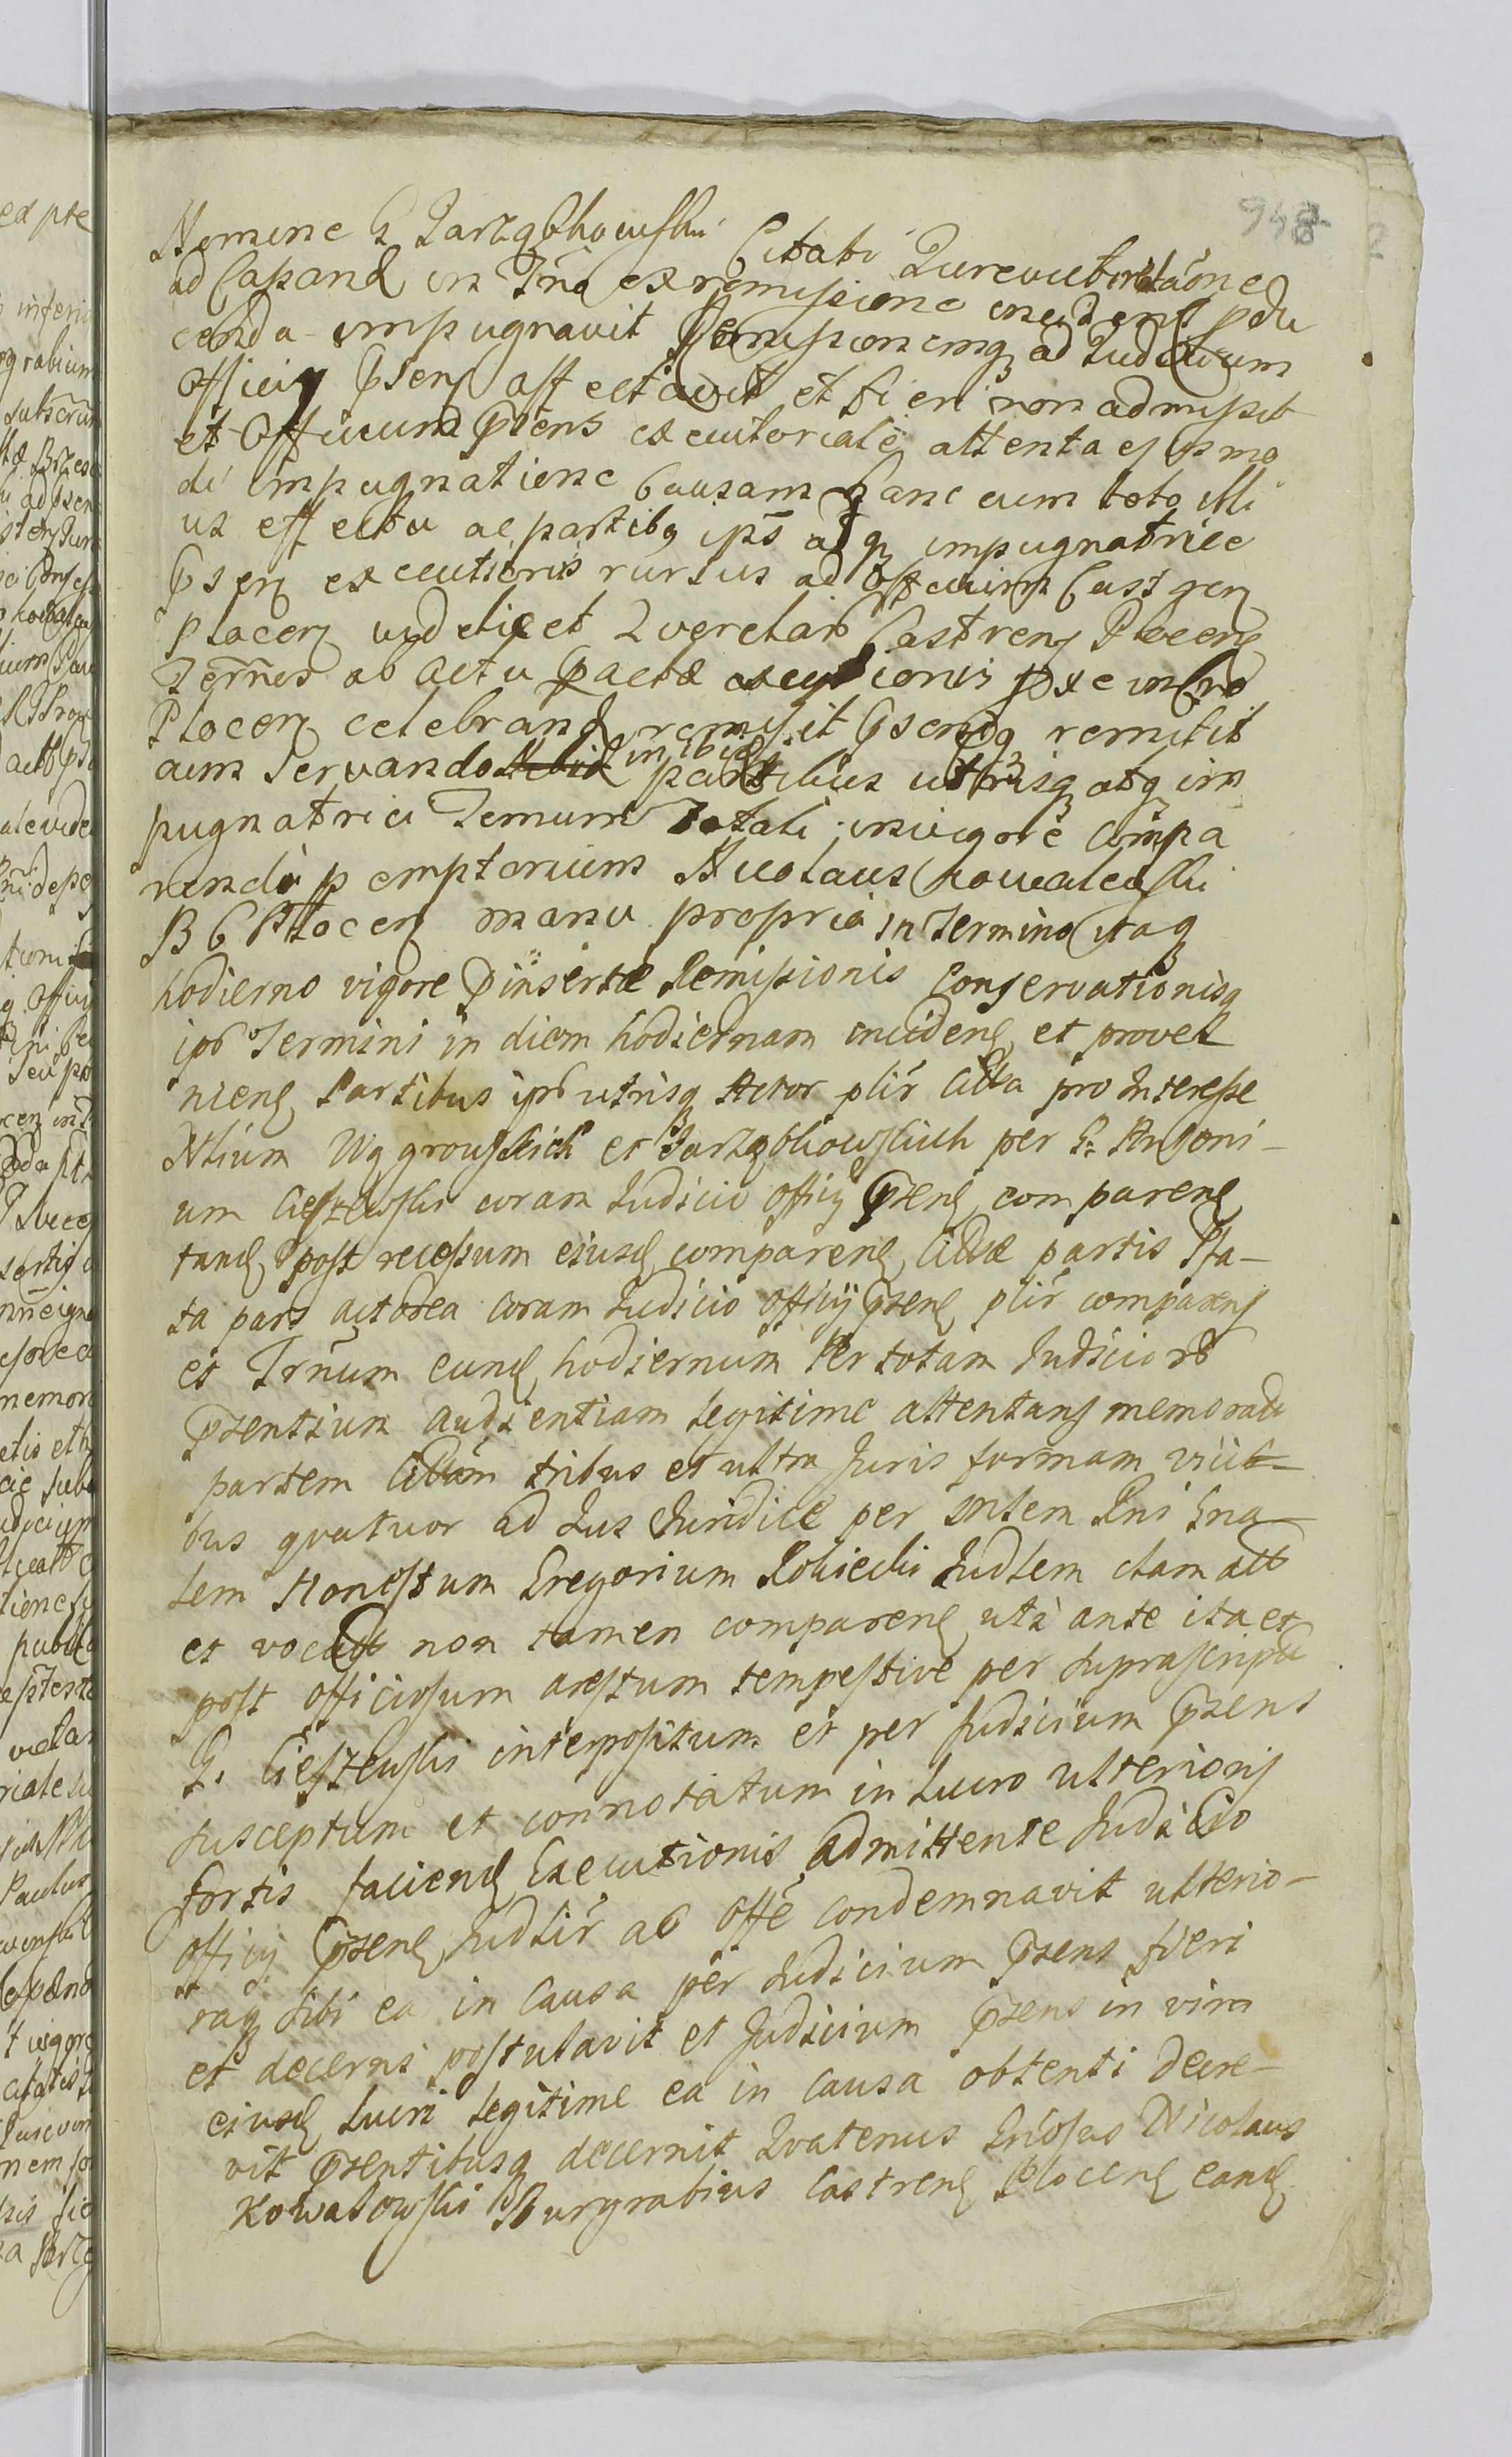 948
Nomine G Jarząbkowski Citati
ad Capand in Trno ex remissione inciden pdu
cenda impugnavit Remissionemq ad Judicium
Officij Psens affectavit et fieri non admisit
et Officium Psens executoriale attenta ejsmo
di impugnatione Causam hanc cum toto illi
us effectu ac partibq ips atq impugnatrice
Psen executionis rursus ad Officium Castren
Plocen videlicet Querelas Castrens Plocens
Termos ab actu Pactæ executionis
Plocen celebrand remisit Psentibq remittit
eum servando inibid partibus utrisq atq im
pugnatrici Termum Totali in vigore Compa
rendi pemptorium Nicolaus Kowalewski
B C Plocen manu propria in Termino itaq
hodierno vigore Pinsertæ Remissionis Conservationisq
ips Termini in diem hodiernam inciden et prove
nien Partibus ips utrisq Actor plir Citta pro Interesse
Ntium Węgrowskich et Jarząbkowskich per G. Antoni-
um CiesZewski coram Judicio Officij Psens comparens
tand post recessum eiusd comparens Cittæ partis Pfa-
ta pars actorea coram Judicio Officij Psens plir comparens
et Trnum eund hodiernum Per totam Judicior
Psentium audientiam legitime attentans memorata
partem Cittam tribus et ultra Juris formam vicib-
bus quatuor ad Jus Juridice per Mtem Rni Gna
lem Honestum Gregorium Robiecki Judlem clam att
et vocatt non tamen comparens uti ante ita et
post officiosum arestum tempestive per supraScriptu
G. CiesZewski interpositum et per Judicium Psens
susceptum et connotatum in Lucro ulterioris
fortis faciend Executionis admittente Judicio
Officij Psens Judlir ab Offe condemnavit ulterio-
raq sibi ea in Causa per Judicium Psens fieri
et decerni postulavit et Judicium Psens in vim
eiusd lucri legitime ea in Causa obtenti Decre-
vit Psentibusq decernit Quatenus Gnosus Nicolaus
Kowalowski Burgrabius Castrens Plocens eand